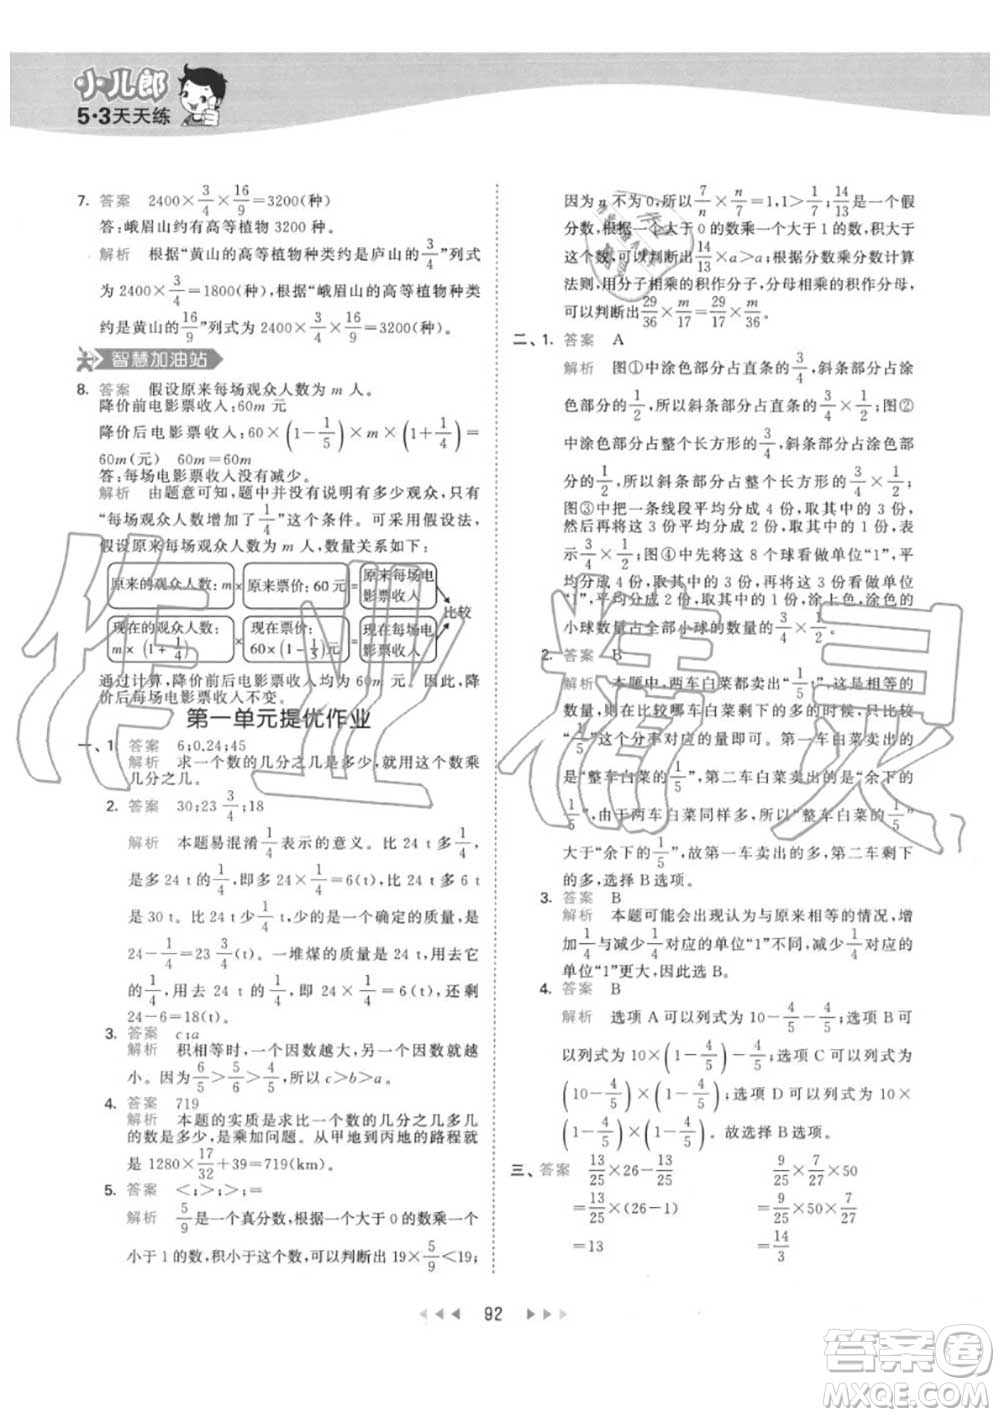 小儿郎
5·3天天练
7. 答案 2400×3/4×16/9=3200(种)
答:峨眉山约有高等植物 3200 种。
解析 根据“黄山的高等植物种类约是庐山的3/4”列式
为 2400×3/4=1800(种),根据“峨眉山的高等植物种类
约是黄山的16/9”列式为 2400×3/4×16/9=3200(种)。
智慧加油站
8. 答案 假设原来每场观众人数为 m 人。
降价前电影票收入:60m 元
降价后电影票收入:60×(1-1/5)×m×(1+1/4)=
60m(元) 60m=60m
答:每场电影票收入没有减少。
解析 由题意可知,题中并没有说明有多少观众,只有
“每场观众人数增加了1/4”这个条件。可采用假设法,
假设原来每场观众人数为 m 人,数量关系如下:
原来的观众人数:m × 原来票价:60 元 = 原来每场电影票收入
比较
现在的观众人数:m×(1+1/4) × 现在票价:60×(1-1/5)元 = 现在每场电影票收入
通过计算,降价前后电影票收入均为 60m 元,所以降
价后每场电影票收入不变。
第一单元提优作业
一、1. 答案 6;0.24;45
解析 求一个数的几分之几是多少,就用这个数乘
几分之几。
2. 答案 30;23 3/4;18
解析 本题易混淆1/4表示的意义。比 24 t 多1/4,
是多 24 t 的1/4,是多 24×1/4=6(t),比 24 t 多 6 t
是 30 t。比 24 t 少1/4 t,少的是一个确定的质量,是
24-1/4=23 3/4(t)。一堆煤的质量是 24 t,用去它的
1/4,是用去 24 t 的1/4,即 24×1/4=6(t),还剩
24-6=18(t)。
3. 答案 c;a
解析 积相等时,一个因数越大,另一个因数就越
小。因为6/5>5/5>5/6,所以 c>b>a。
4. 答案 719
解析 本题的实质是求比一个数的几分之几多几
的数是多少,是乘加问题。从甲地到丙地的路程就
是 1280×17/32+39=719(km)。
5. 答案 <;>;>;=
解析 5/9是一个真分数,根据一个大于 0 的数乘一个
小于 1 的数,积小于这个数,可以判断出 19×5/9<19;
因为 n 不为 0,所以7/n×n/7=1,1>1/7;14/13是一个假
分数,根据一个大于 0 的数乘一个大于 1 的数,积大于
这个数,可以判断出14/13×a>a;根据分数乘分数计算
法则,用分子相乘的积作分子,分母相乘的积作分母,
可以判断出29/36×m/17=29/17×m/36。
二、1. 答案 A
解析 图①中涂色部分占直条的3/4,斜条部分占涂
色部分的1/2,所以斜条部分占直条的3/4×1/2;图②
中涂色部分占整个长方形的3/4,斜条部分占涂色部
分的1/2,所以斜条部分占整个长方形的3/4×1/2;
图③中把一条线段平均分成 4 份,取其中的 3 份,
然后再将这 3 份看成整体平均分成 2 份,取 1 份,即
3/4×1/2;图④中先将这 8 个球看作单位“1”,平均
分成 4 份,取其中的 3 份,再将这 3 份看作单位
“1”,平均分成 2 份,取其中的 1 份,涂上色,涂色的
小球数量占全部小球的数量的3/4×1/2。
2. 答案 B
解析 本题中,两车白菜都卖出了“1/5”,但题目问
的是两车白菜卖出的多少的时候,只需比较
“1/5”这个分率对应的量即可。第一车白菜卖出的
是“整车白菜的1/5”,第二车白菜卖出的是“余下的
1/5”,由于两车白菜同样的多,所以“整车白菜的1/5”
大于“余下的1/5”,故第一车卖出的多,第二车卖出
的少,选择 B 选项。
3. 答案 B
解析 本题可能会出现认为与原来相等的情况,增
加1/4与减少1/4对应的单位“1”不同,减少1/4对应的
单位“1”更大,因此选 B。
4. 答案 B
解析 选项 A 可以列式为 10-4/5-4/5;选项 B 可
以列式为 10×(1-4/5)-4/5;选项 C 可以列式为
(10-4/5)×(1-4/5);选项 D 可以列式为 10×
(1-4/5)×(1-4/5)。故选择 B 选项。
三、答案 13/25×26-13/25 9/25×7/9×50
=13/25×(26-1) =9/25×50×7/9
=13 =14
92
作业精灵
答案圈
MXQE.COM